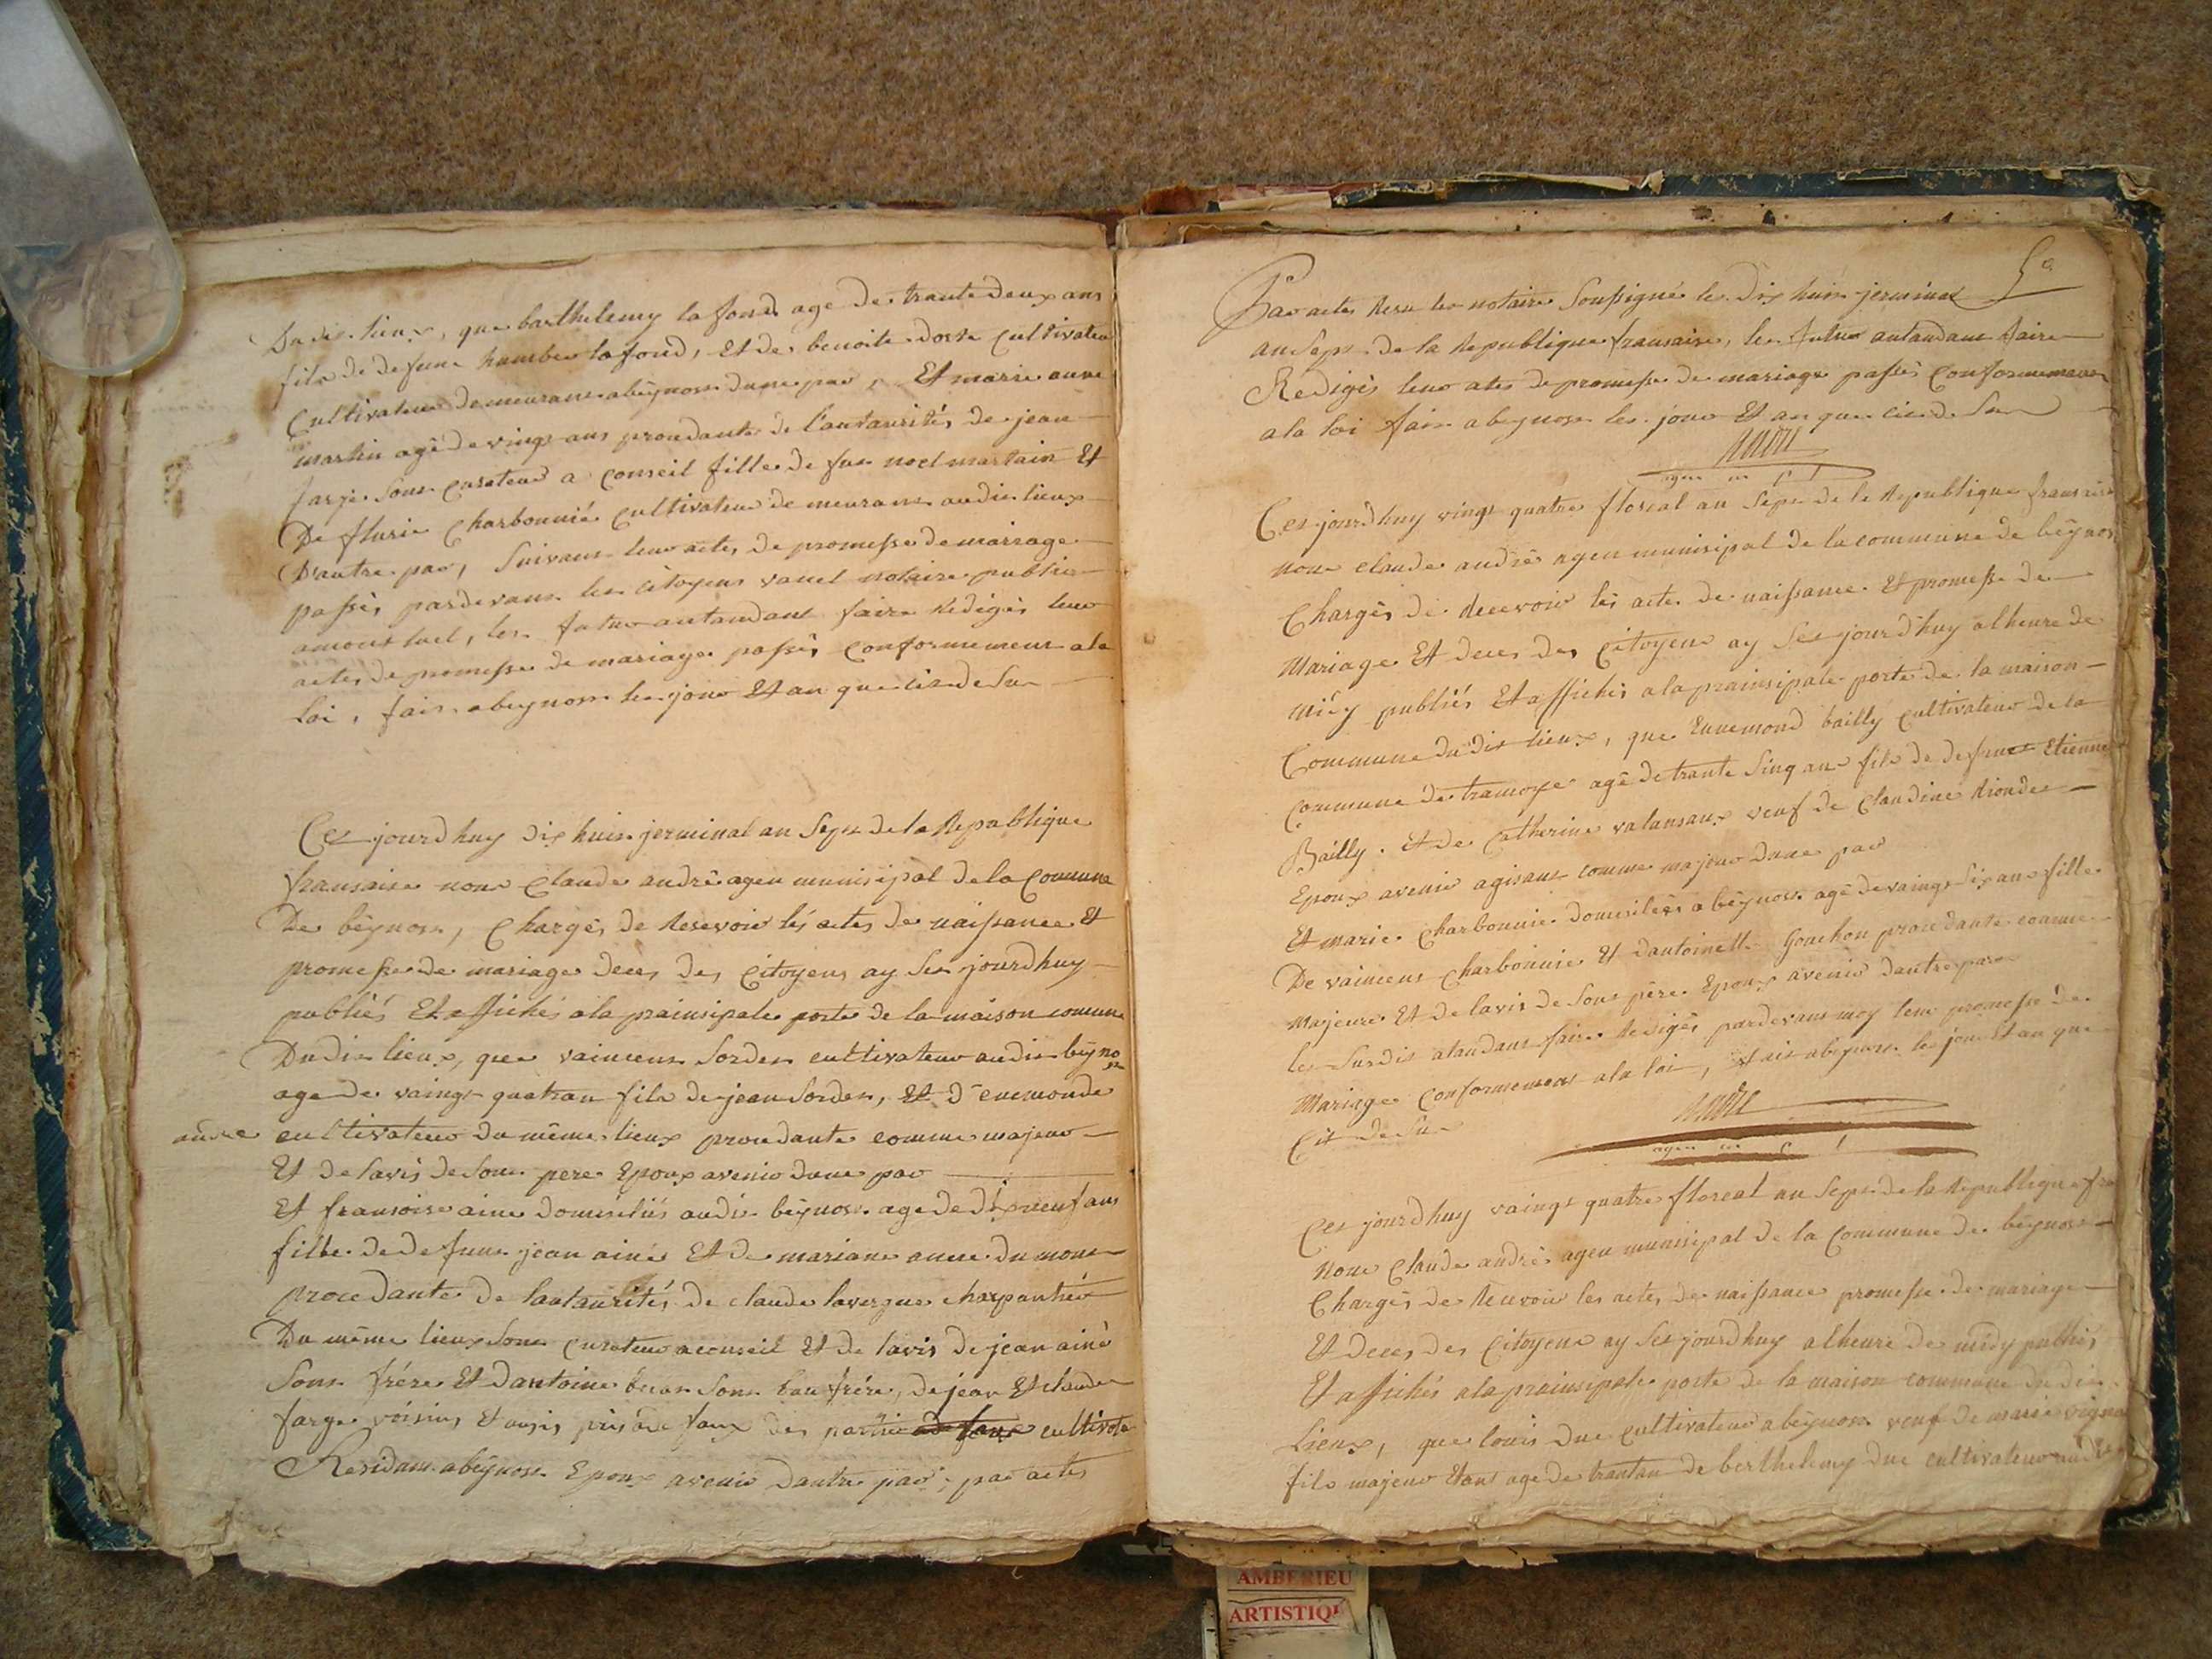 Dudit lieux, que barthelemy la fond age de trante deux ans
fils de defunt humber lafond, Et de benoite dost cultivateur
Cultivateur demeurant abeynost dune par, Et marie anne
martin agé de vingt ans prondante de l'autaurités de jean
farge son curateur a conseil fille de fut noel martain Et
De flurie Charbonnié cultivateur de meurant audit lieux
D'autre par, Suivant leur actes de promesse de mariage
passés pardevant le citoyens vanel notaire public
amontluel, les futur antandant faire Redigés leur
actes de promesse de mariage passés conformement ala
loi, fait abeynost le jour Et an que cit de Sur
Cet jourdhuy dix huit jerminal an Sept de la Republique
fransaise nous Claude andré agen munisipal de la Comune
De béynost, Chargés de Resevoir lés actes de naissance Et
promesse de mariage deces des Citoyens ay Set jourdhuy
publiés Et affichés ala prainsipale porte de la maison comune
Dudit lieux, que vaincent Sorden cultivateur audit béyno
st
age de vaingt quatran fils de jean Sorden, Et d'enemonde
andre cultivateur du même lieux prondante comme majeur
Et de lavis de Son pere Epoux avenir dune par
Et fransoise aine domisiliés audit béynost age de dixneuf ans
fille de defunt jean ainé Et de mariane du mont
procedante de lautaurités de claude lavergne charpantiér
Du même lieux Son curateur aconseil Et de lavis de jean ainé
Son frére Et dantoine Son bau frére, de jean Et claude
farge voisins Et amis pris de faux des partie cultivate
Residant abéynost Epoux avenir dautre par, par actes
5e
Par actes Resu le notaire Soussigné le Dix huit jerminal
an Sept de la Republique fransaise, les futur antandant faire
Redigés leur ates de promesse de mariage passés Conformemant
ala loi fait abeynost les jour Et an que cit de Sur
andré
agen m l
Cet jourdhuy vingt quatre floreal an Sept de la Republique fransaise
nous claude andré agen munisipal de la commune de béynost
Chargés de Recevoir lés actes de naissance Et promesse de
Mariage Et deces des Citoyens ay Set jourdhuy alheure de
midy publiés Et affichés ala prainsipale porte de la maison
Commune dudit lieux, que Ennemond bailly cultivateur de la
Commune de tramoye agé de trante Sinq ans fils de defunct Etienne
Bailly. Et de Catherine valansaux veuf de Claudine Riondet
Epoux avenir agisant comme majeur dune par
Et marie Charbonnie domisiliés a béynost agé de vaingt Six ans fille
De vaincent Charbonnie Et dantoinette Gonchon procedante comme
Majeure Et de lavis de Son pére Epoux avenir dautre par
les Surdit atandant faire Redigés pardevant moy leur promesse de
Mariage Conformement ala loi, fait abeynost le jour Et an que
Cit de Sur
andré
agen m l
Cet jourdhuy vaingt quatre floreal an Sept de la Republique fra
Nous Claude andré agen munisipal de la Commune de béynost
Chargés de Recevoir les actes de naissance promesse de mariage
Et deces des Citoyens ay Set jourdhuy alheure de midy publiés
Et affichés ala prainsipale porte de la maison commune du dit
Lieux, que louis duc cultivateur abéynost veuf de marie vigna
fils majeur Etant age de trantan de berthelemy duc cultivateur audit
AMBERIEU
ARTISTIQ